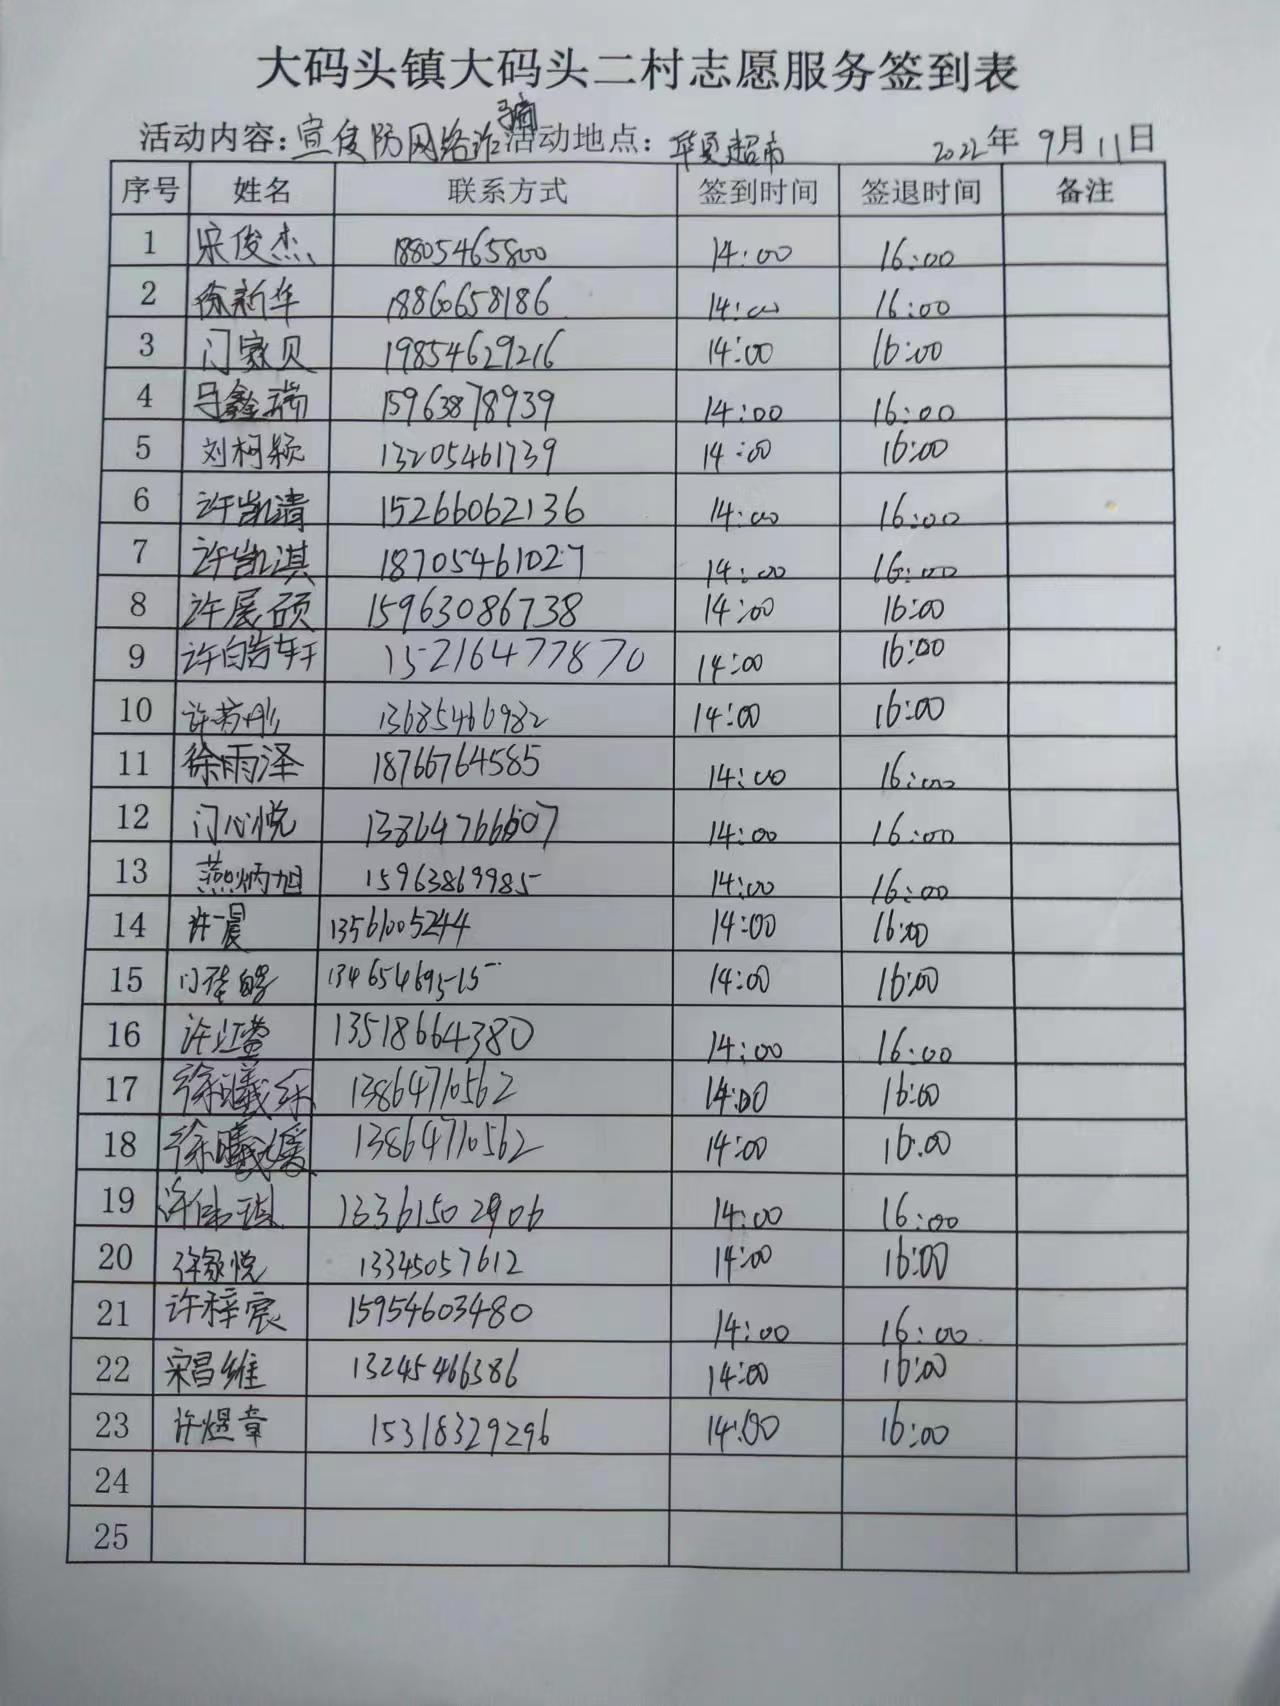 大码头镇大码头二村志愿服务签到表
活动内容：宣传防网络诈骗 活动地点：华夏超市 2022年 9月11日
序号 姓名 联系方式 签到时间 签退时间 备注
1 宋俊杰 18805465800 14:00 16:00
2 徐新华 18860658186 14:00 16:00
3 门家贝 19854629216 14:00 16:00
4 马鑫瑞 15963878939 14:00 16:00
5 刘柯颖 13205461739 14:00 16:00
6 许凯清 15266062136 14:00 16:00
7 许凯淇 18705461027 14:00 16:00
8 许展硕 15963086738 14:00 16:00
9 许皓轩 15216477870 14:00 16:00
10 许 13685466982 14:00 16:00
11 徐雨泽 18766764585 14:00 16:00
12 门心悦 13864766607 14:00 16:00
13 燕炳旭 15963869985 14:00 16:00
14 许晨 13561005244 14:00 16:00
15 门 13465469515 14:00 16:00
16 许 13518664380 14:00 16:00
17 徐曦 13864710562 14:00 16:00
18 徐曦媛 13864710562 14:00 16:00
19 许伟琪 13361502906 14:00 16:00
20 许家悦 13345057612 14:00 16:00
21 许梓宸 15954603480 14:00 16:00
22 宋昌维 13245466386 14:00 16:00
23 许煜章 15318329296 14:00 16:00
24
25